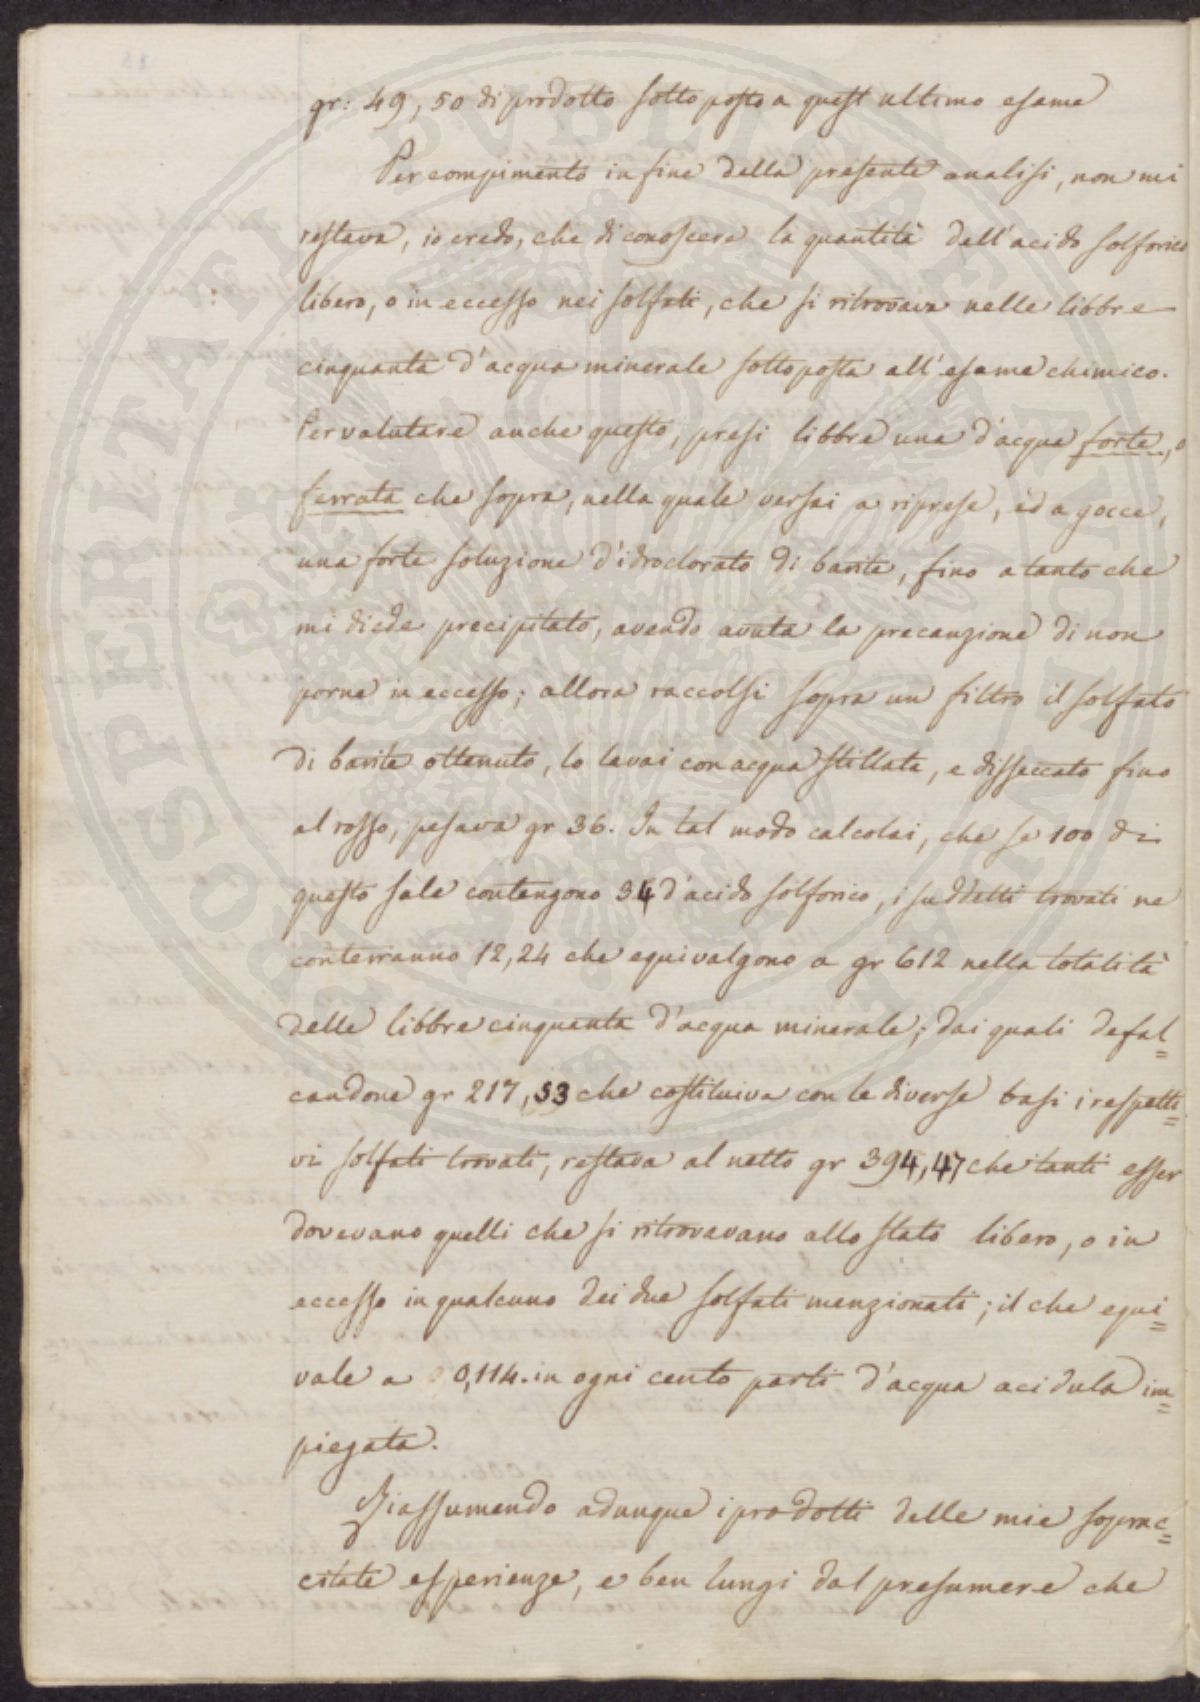 gr: 49,50 di prodotto sottoposto a quest ultimo esame
Per compimento in fine della presente analisi, non mi
restava, io credo, che di conoscere la quantità dell'acido solforico
libero, o in eccesso nei solfati, che si ritrovava nelle libbre
cinquanta d'acqua minerale sottoposta all'esame chimico.
Per valutare anche questo, presi libbre una d'acqua forte, o
ferrata che sopra, nella quale versai a riprese, ed a gocce,
una forte soluzione d'idroclorato di barite, fino a tanto che
mi diede precipitato, avendo avuta la precauzione di non
porne in eccesso; allora raccolsi sopra un filtro il solfato
di barite ottenuto, lo lavai con acqua stillata, e disseccato fino
al rosso, pesava gr 36. In tal modo calcolai, che se 100 di
questo sale contengono 34 d'acido solforico, i suddetti trovati ne
conterranno 12,24 che equivalgono a gr 612 nella totalità
delle libbre cinquanta d'acqua minerale; dai quali defal=
candone gr 217,53 che costituiva con le diverse basi i respetti=
vi solfati trovati, restava al netto gr 394,47 che tanti esser
dovevano quelli che si ritrovavano allo stato libero, o in
eccesso in qualcuno dei due solfati menzionati; il che equi=
vale a 0,114. in ogni cento parti d'acqua acidula im=
piegata.
Riassumendo adunque i prodotti delle mie soprac=
citate esperienze, e ben lungi dal presumere che
PROSPERITATI PUBLICAE AUGENDAE